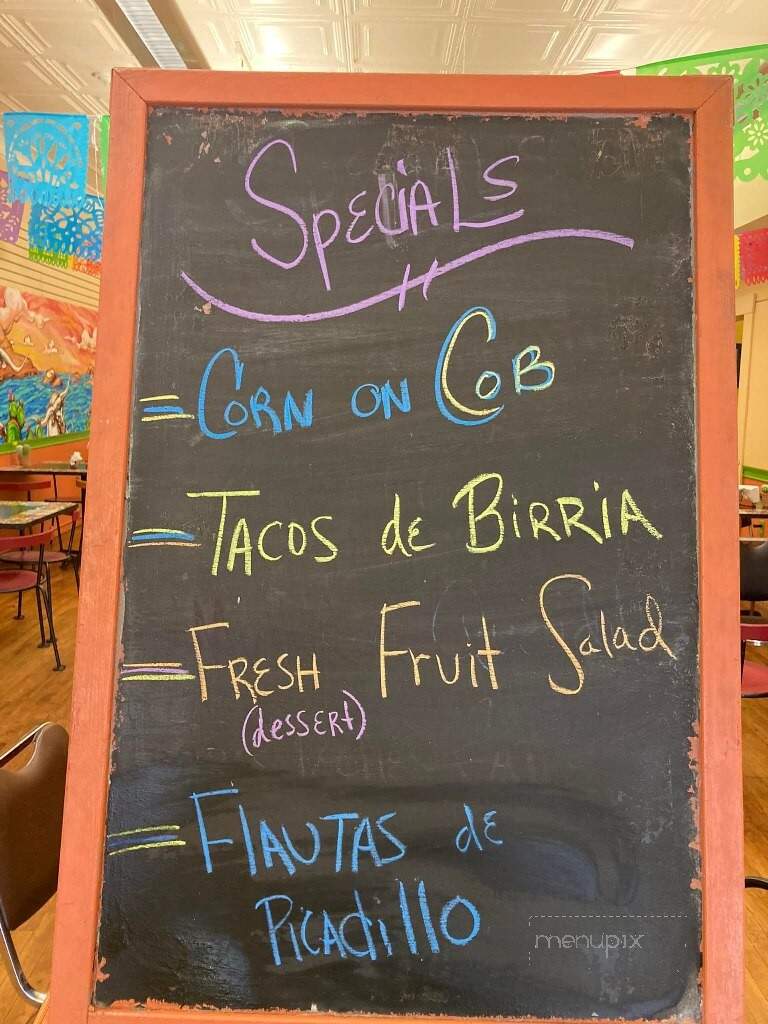 SPECIALS
= CORN ON COB
= TACOS de BIRRIA
= FRESH Fruit Salad
(dessert)
= FlAUTAS dE
PICAdillO
menupix